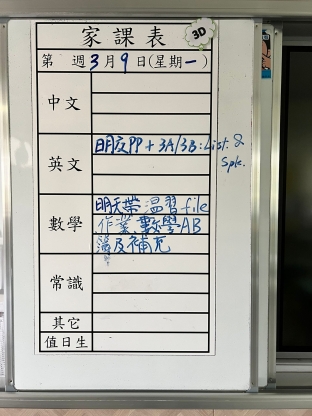 家課表 3D
第 週 3 月 9 日(星期一)
中文
英文
明交PP + 3A/3B: List. &
Spk.
數學
明天帶溫習file
作業,數學AB
簿及補充
常識
其它
值日生